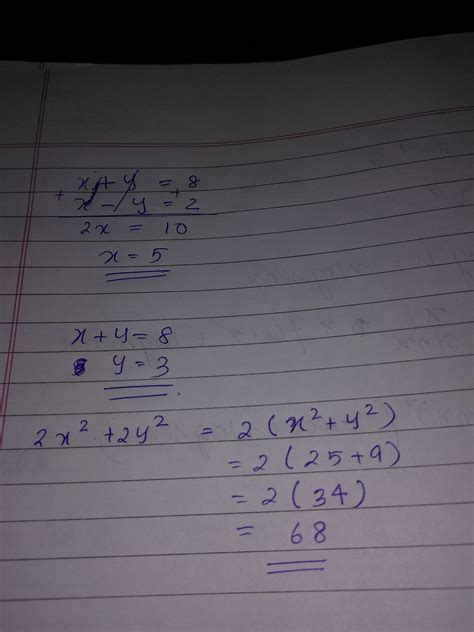 x + y = 8
+ x - y = + 2
2x = 10
x = 5
x + y = 8
y = 3
2x² + 2y² = 2(x² + y²)
= 2(25 + 9)
= 2(34)
= 68